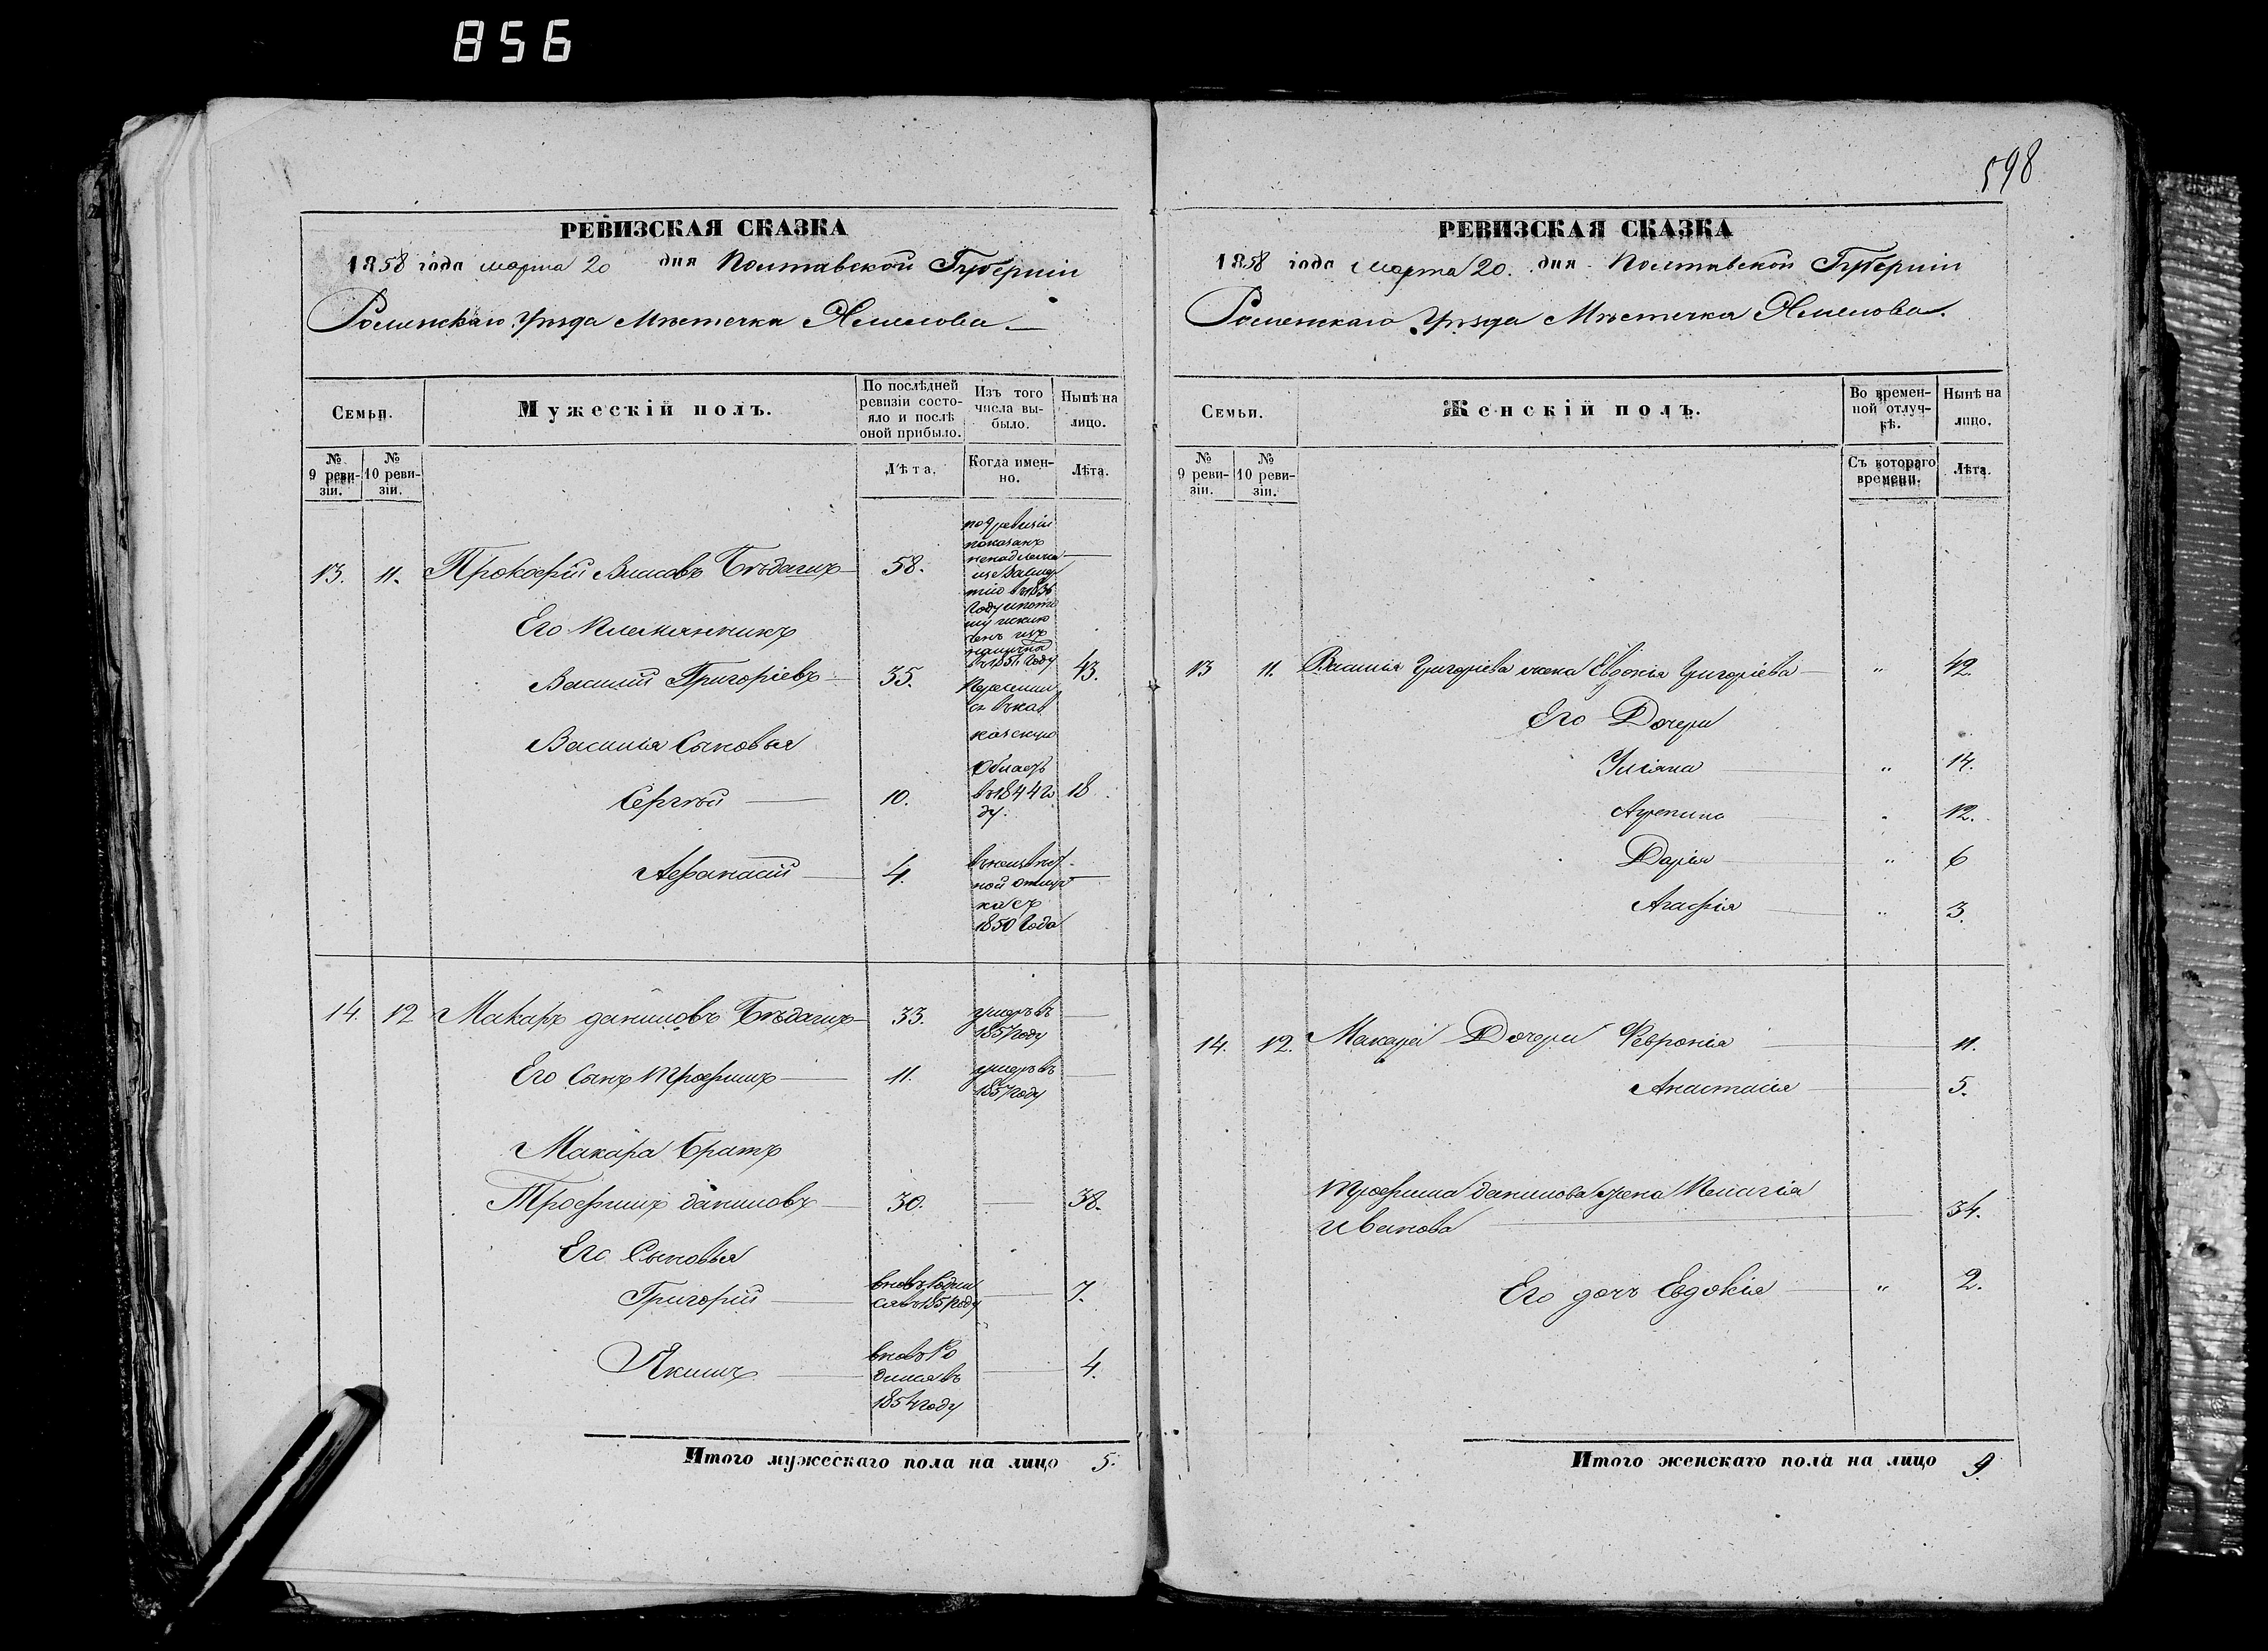 856
598
РЕВИЗСКАЯ СКАЗКА
1858 года марта 20 дня Полтавской Губерніи
Роменскаго Уѣзда Мѣстечка
Семьи.
Мужескій полъ.
По послѣдней ревизіи состояло и послѣ оной прибыло.
Изъ того числа выбыло.
Нынѣ на лицо.
№ 9 ревизіи.
№ 10 ревизіи.
Лѣта.
Когда именно.
Лѣта.
13. 11. Прокофій Власовъ 58.
по 9 ревизіи
показанъ
году
въ 1851 году
Его Племянникъ
Василій Григоріевъ 35. 43.
Василія Сыновья
Сергѣй 10. 18
Область
въ 1844 го
ду.
Афанасій 4.
ной отлуч
кѣ съ
1850 года
14. 12 Макаръ Даниловъ 33. умеръ въ
1857 году
Его Сынъ Трофимъ 11. умеръ въ
1857 году
Макара Братъ
Трофимъ Даниловъ 30. 38.
Его Сыновья
Григорій 7.
вновь родил
ся въ 1851 году
Якимъ 4.
вновь ро
дился въ
1854 году
Итого мужескаго пола на лицо 5.
РЕВИЗСКАЯ СКАЗКА
1858 года марта 20. дня Полтавской Губерніи
Роменскаго Уѣзда Мѣстечка
Семьи.
Женскій полъ.
Во временной отлучкѣ.
Нынѣ на лицо.
№ 9 ревизіи.
№ 10 ревизіи.
Съ котораго времени.
Лѣта.
13 11. Василія Григоріева жена Евдокія Григоріева " 42.
Его Дочери
Уліяна " 14.
Агрепина " 12.
Дарія " 6
Агафія " 3.
14. 12. Макара Дочери Февронія 11.
Анастасія 5.
Трофима Данилова жена Пелагія
Иванова 34.
Его дочь Евдокія " 2.
Итого женскаго пола на лицо 9